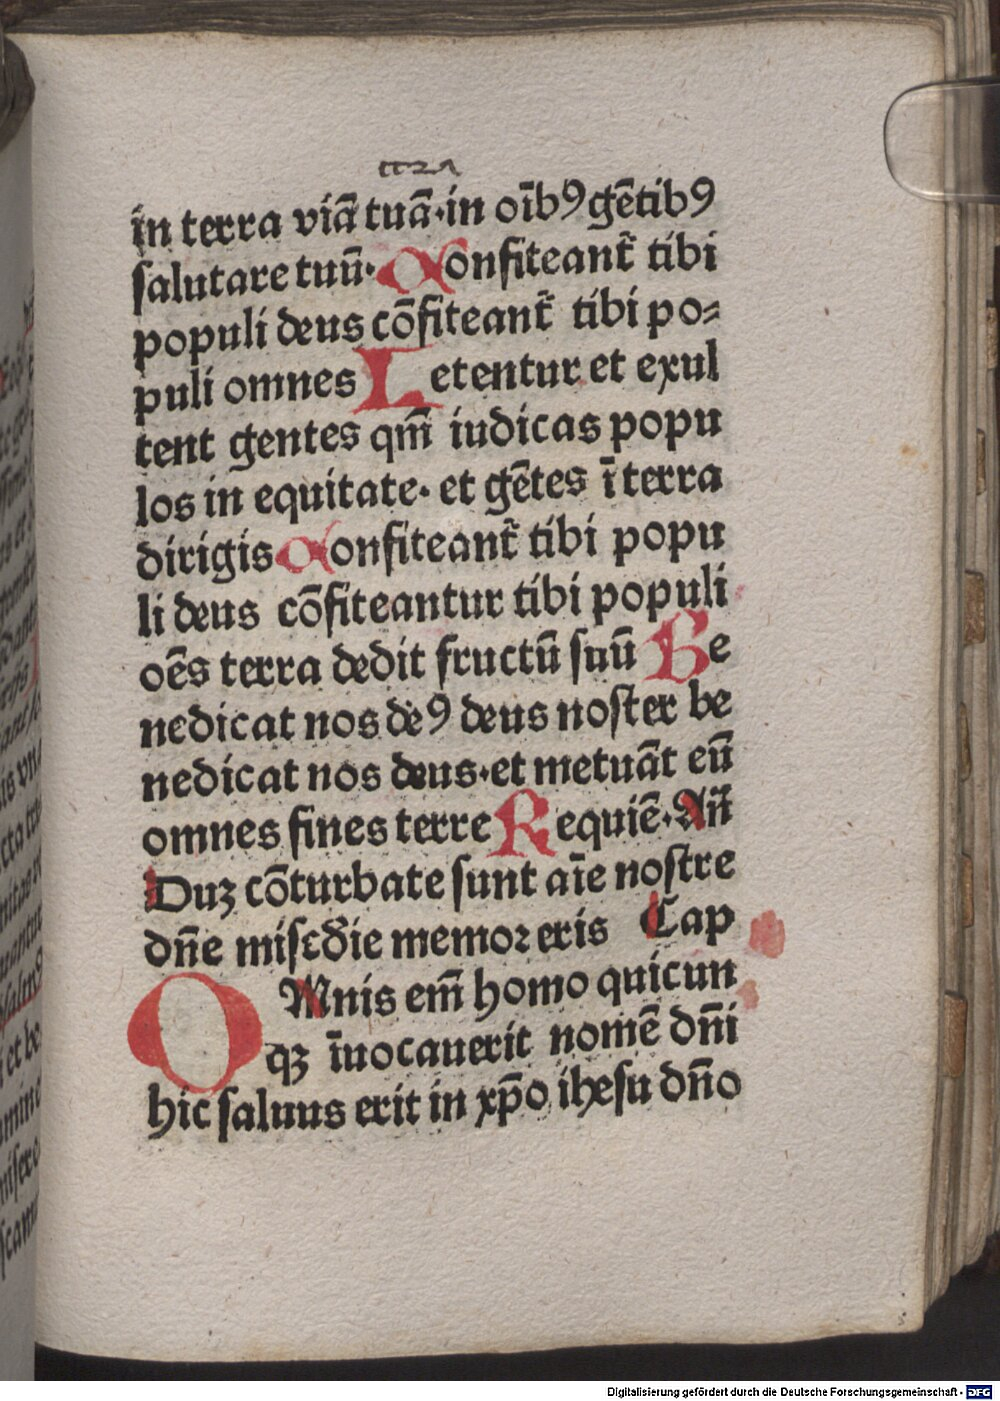 in terra viā tuā·in oīb9 gētib9
salutare tuū· Confiteant̄ tibi
populi deus cōfiteant̄ tibi po-
puli omnes Letentur et exul
tent gentes qm̄ iudicas popu
los in equitate· et gētes ī terra
dirigis Confiteant̄ tibi popu
li deus cōfiteantur tibi populi
oēs terra dedit fructū suū Be
nedicat nos de9 deus noster be
nedicat nos deus·et metuāt eū
omnes fines terre Requiē·An̄
Duꝫ cōturbate sunt aīe nostre
dn̄e misc̄die memor eris Cap
OMnis em̄ homo quicun
qꝫ īuocauerit nomē dn̄i
hic saluus erit in xp̄o ihesu dn̄o
Digitalisierung gefördert durch die Deutsche Forschungsgemeinschaft - DFG